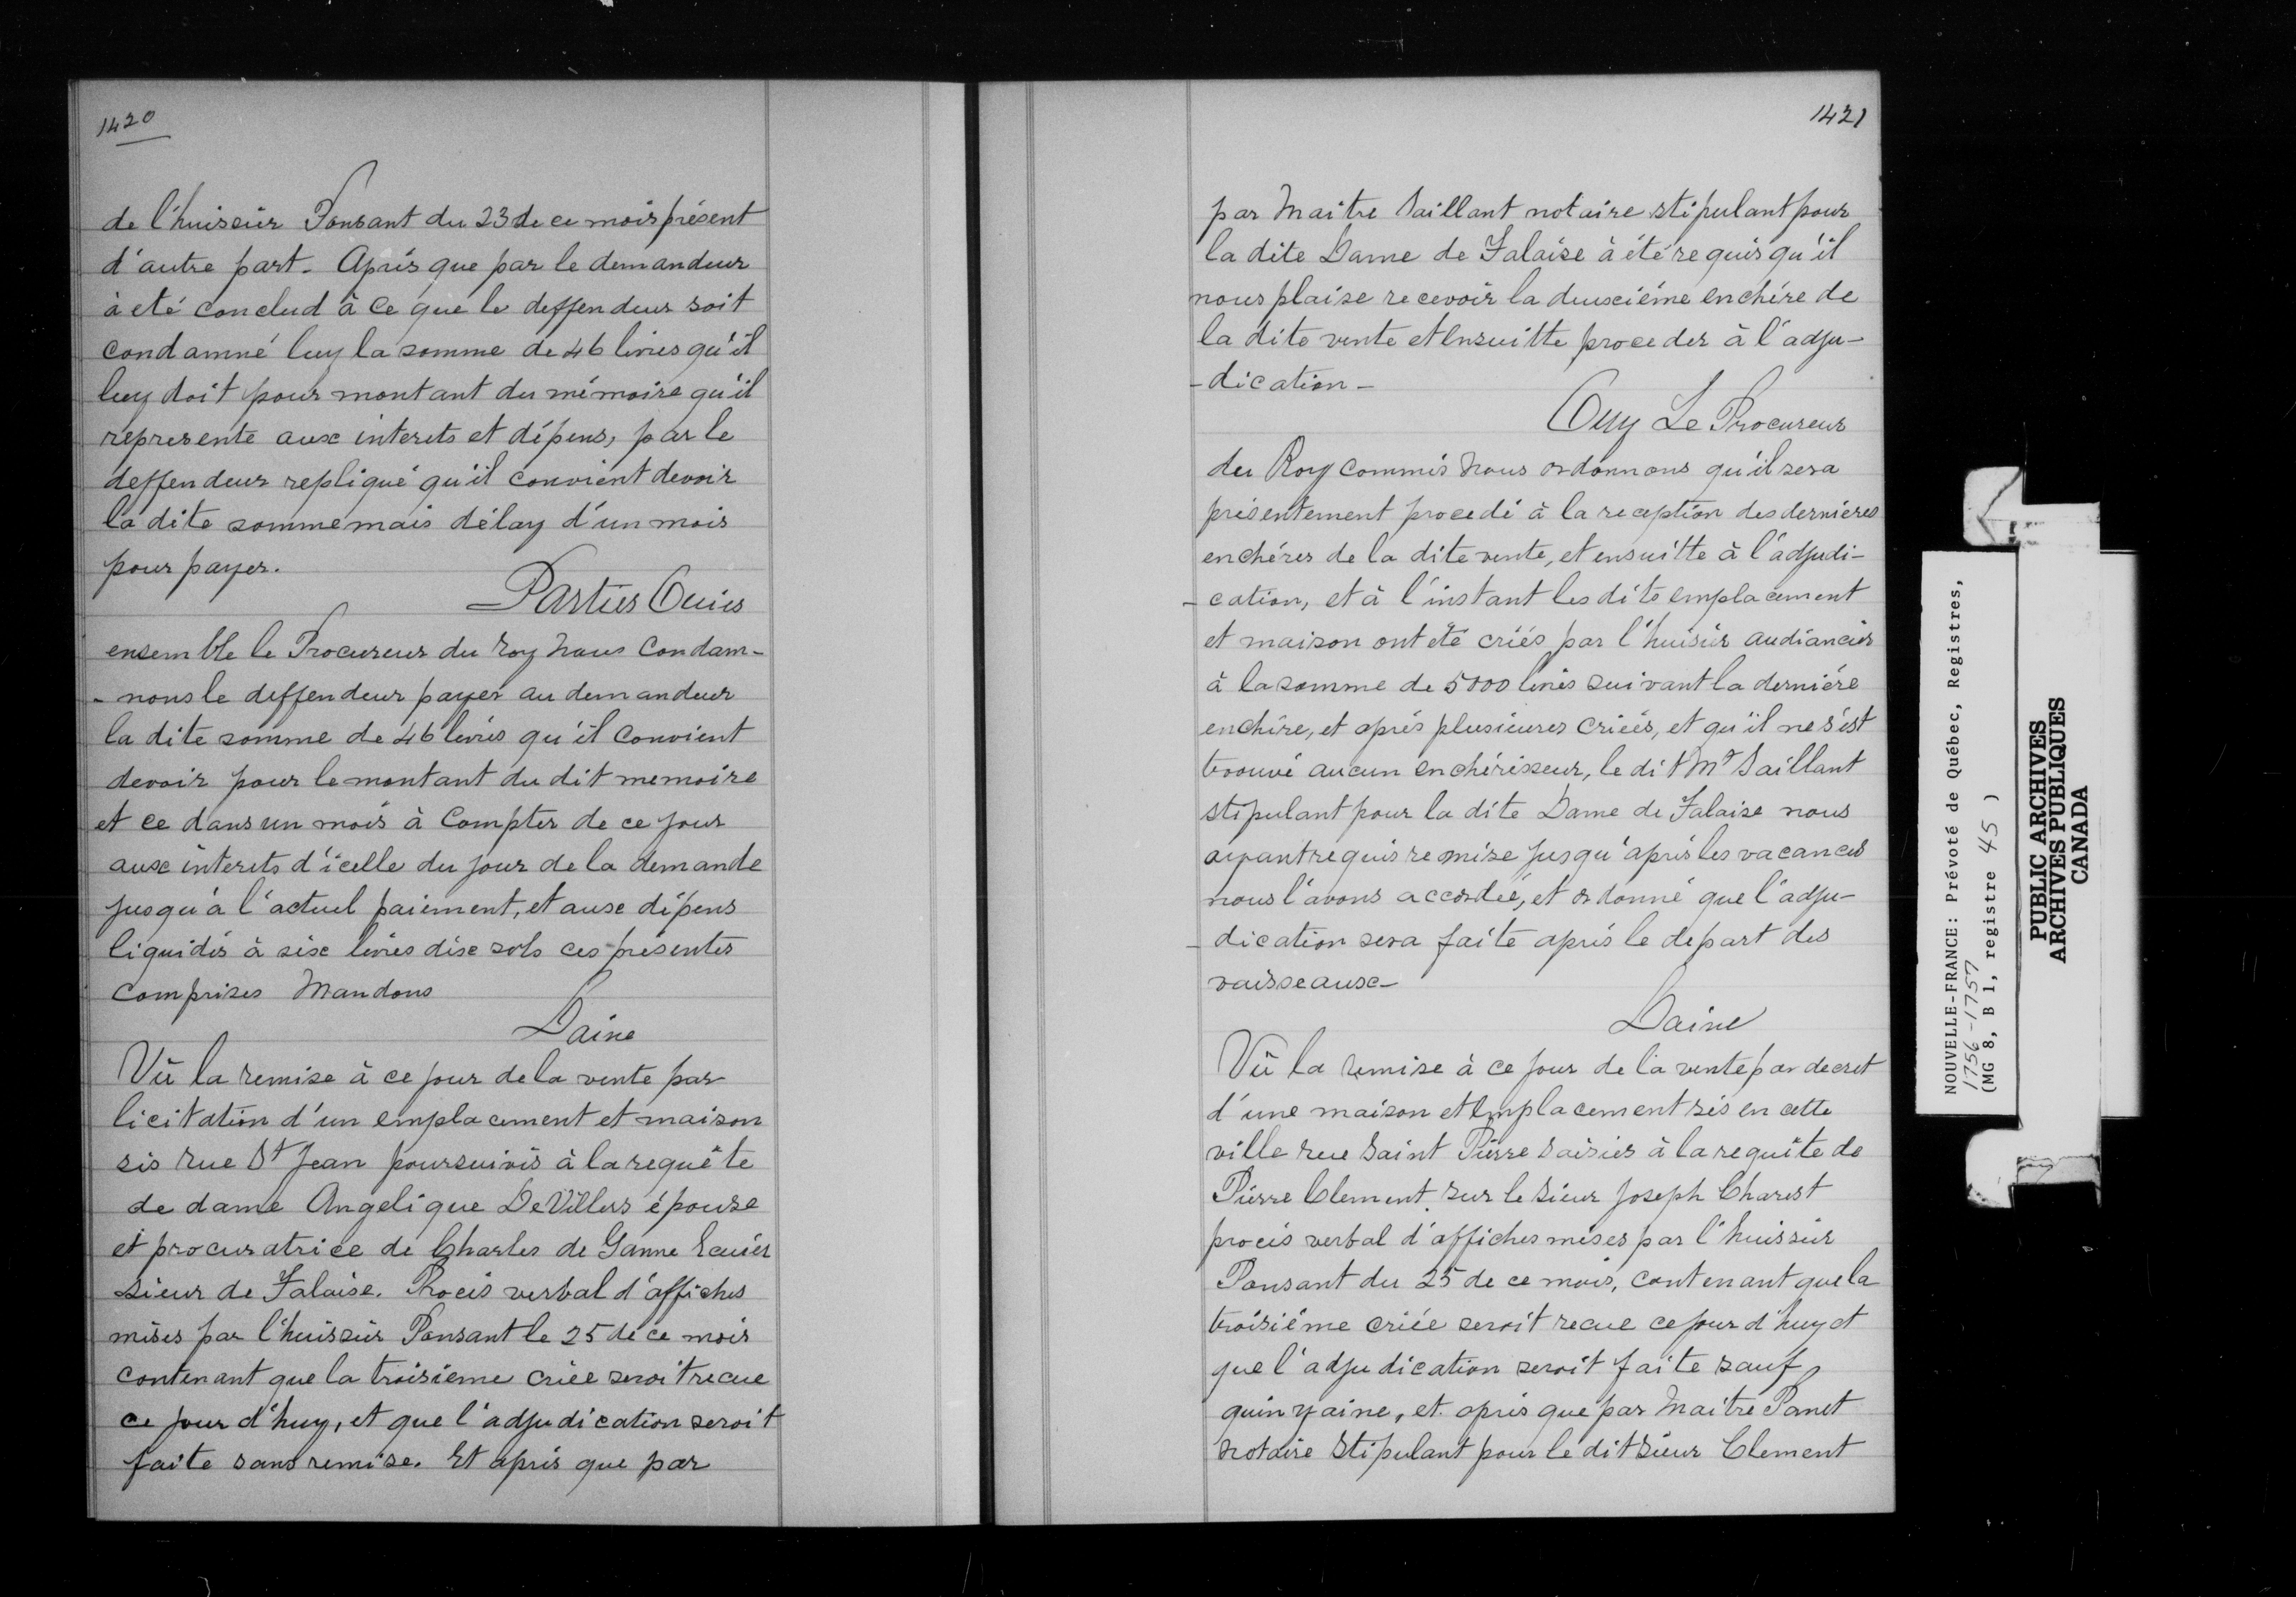 1420
de l'huissier Ponsant du 23 de ce mois présent
d'autre part. Après que par le demandeur
à eté conclud à ce que le deffendeur soit
condamné luy la somme de 46 livres qu'il
luy doit pour montant du mémoire qu'il
represente aux interets et dépens, par le
deffendeur repliqué qu'il convient devoir
la dite somme mais délay d'un mois
pour payer.
Parties Ouies
ensemble le Procureur du roy nous Condam-
-nons le deffendeur payer au demandeur
la dite somme de 46 livres qu'il convient
devoir pour le montant du dit memoire
et ce dans un mois à Compter de ce jour
aux interets d'icelle du jour de la demande
jusqu'à l'actuel paiement, et aux dépens
liquidés à six livres dix sols ces présentes
comprises Mandons
Daine
Vû la remise à ce jour de la vente par
licitation d'un emplacement et maison
sis rue St Jean poursuivis à la requête
de dame Angelique De Villers épouse
et procuratrice de Charles de Ganne Ecuier
sieur de Falaise. Procès verbal d'affiches
mises par l'huissier Ponsant le 25 de ce mois
contenant que la troisieme criée seroit recue
ce jour d'huy, et que l'adjudication seroit
faite sans remise. Et après que par
1421
par Maitre Saillant notaire stipulant pour
la dite Dame de Falaise à été requis qu'il
nous plaise recevoir la deuxième enchére de
la dite vente et ensuitte proceder à l'adju-
-dication-
Ouy Le Procureur
du Roy commis nous ordonnons qu'il sera
présentement procedé à la reception des dernieres
enchéres de la dite vente, et ensuitte à l'adjudi-
-cation, et à l'instant les dits emplacement
et maison ont été criés par l'huisier audiancier
à la somme de 5000 livres suivant la derniére
enchère, et aprés plusieures criées, et qu'il ne s'est
trouvé aucun enchérisseur, le dit Me Saillant
stipulant pour la dite Dame de Falaise nous
ayant requis remise jusqu'après les vacances
nous l'avons accordée, et ordonné que l'adju-
-dication sera faite aprés le depart des
vaisseaux-
Daine
Vû la remise à ce jour de la vente par decret
d'une maison et emplacement sis en cette
ville rue Saint Pierre saisies à la requête de
Pierre Clement sur le sieur Joseph Charest
procès verbal d'affiches mises par l'huissier
Ponsant du 25 de ce mois, contenant que la
troisiéme criée seroit recue ce jour d'huy et
que l'adjudication seroit faite sauf
quinzaine, et aprés que par Maitre Panet
notaire stipulant pour le dit sieur Clement
NOUVELLE-FRANCE: Prévoté de Québec, Registres,
1756-1757
(MG 8, B 1, registre 45 )
PUBLIC ARCHIVES
ARCHIVES PUBLIQUES
CANADA